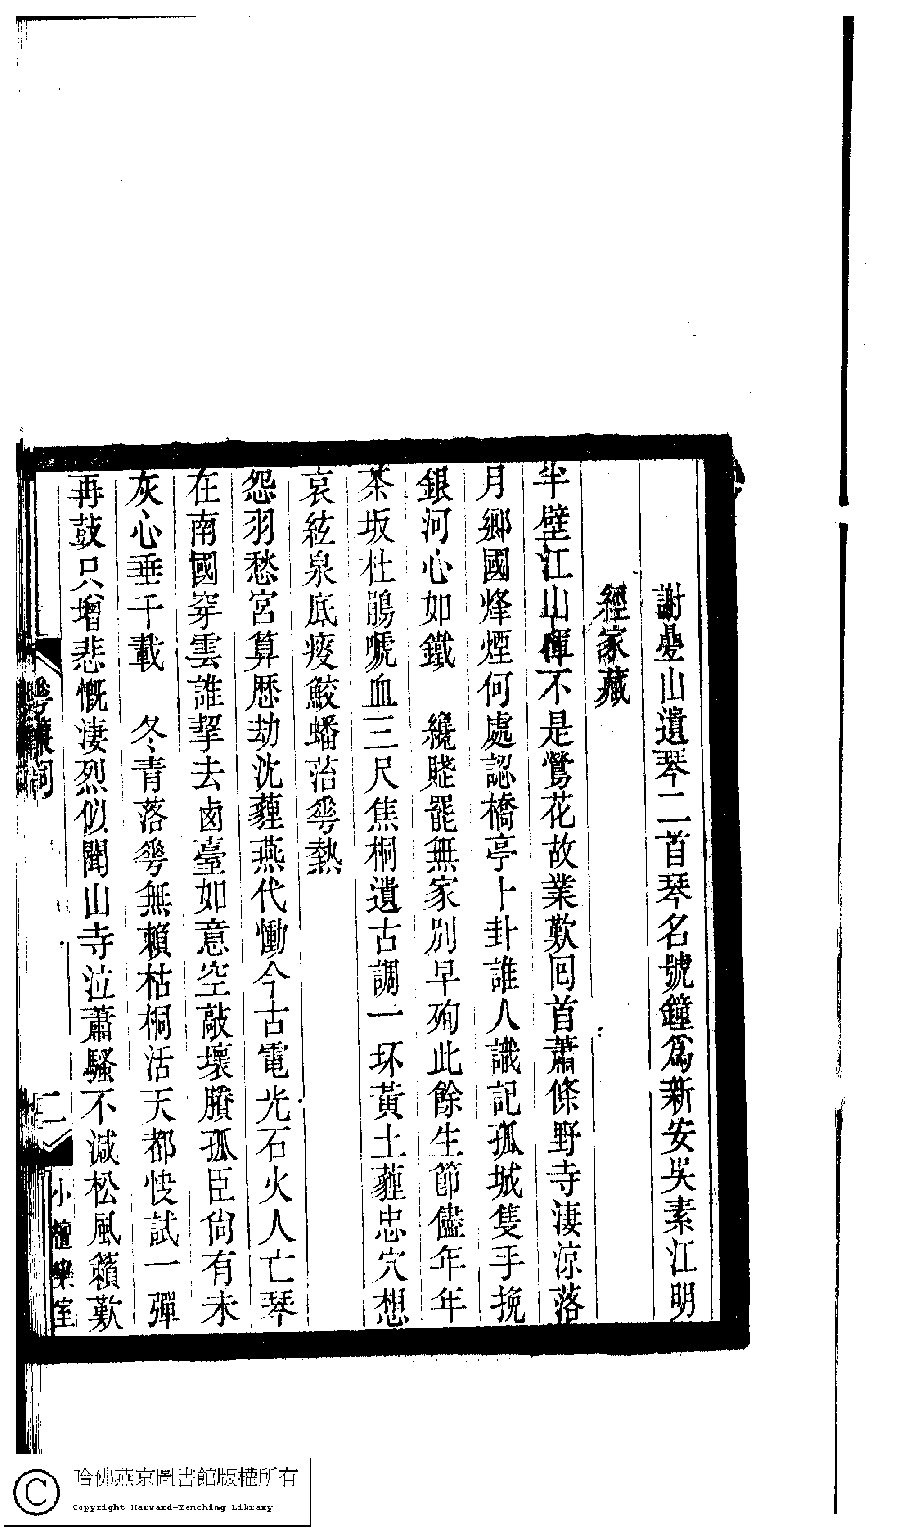 謝疊山遺琴二首琴名號鐘爲新安吳素江明
經家藏
半壁江山渾不是鶯花故業歎回首蕭條野寺淒凉落
月鄉國烽煙何處認橋亭卜卦誰人識記孤城隻手挽
銀河心如鐵　纔賸罷無家別早殉此餘生節儘年年
茶坂杜鵑嗁血三尺焦桐遺古調一坏黃土薶忠穴想
哀絃泉底瘦鮫蟠菭𠌶熱
怨羽愁宮算歷劫沈薶燕代慟今古電光石火人亡琴
在南國穿雲誰挈去鹵臺如意空敲壞賸孤臣尙有未
灰心垂千載　冬青落𠌶無賴枯桐活天都快試一彈
再鼓只增悲慨淒烈似聞山寺泣蕭騷不減松風籟歎
𠌶簾詞
二
小檀欒室
哈佛燕京圖書館版權所有
Copyright Harvard-Yenching Library